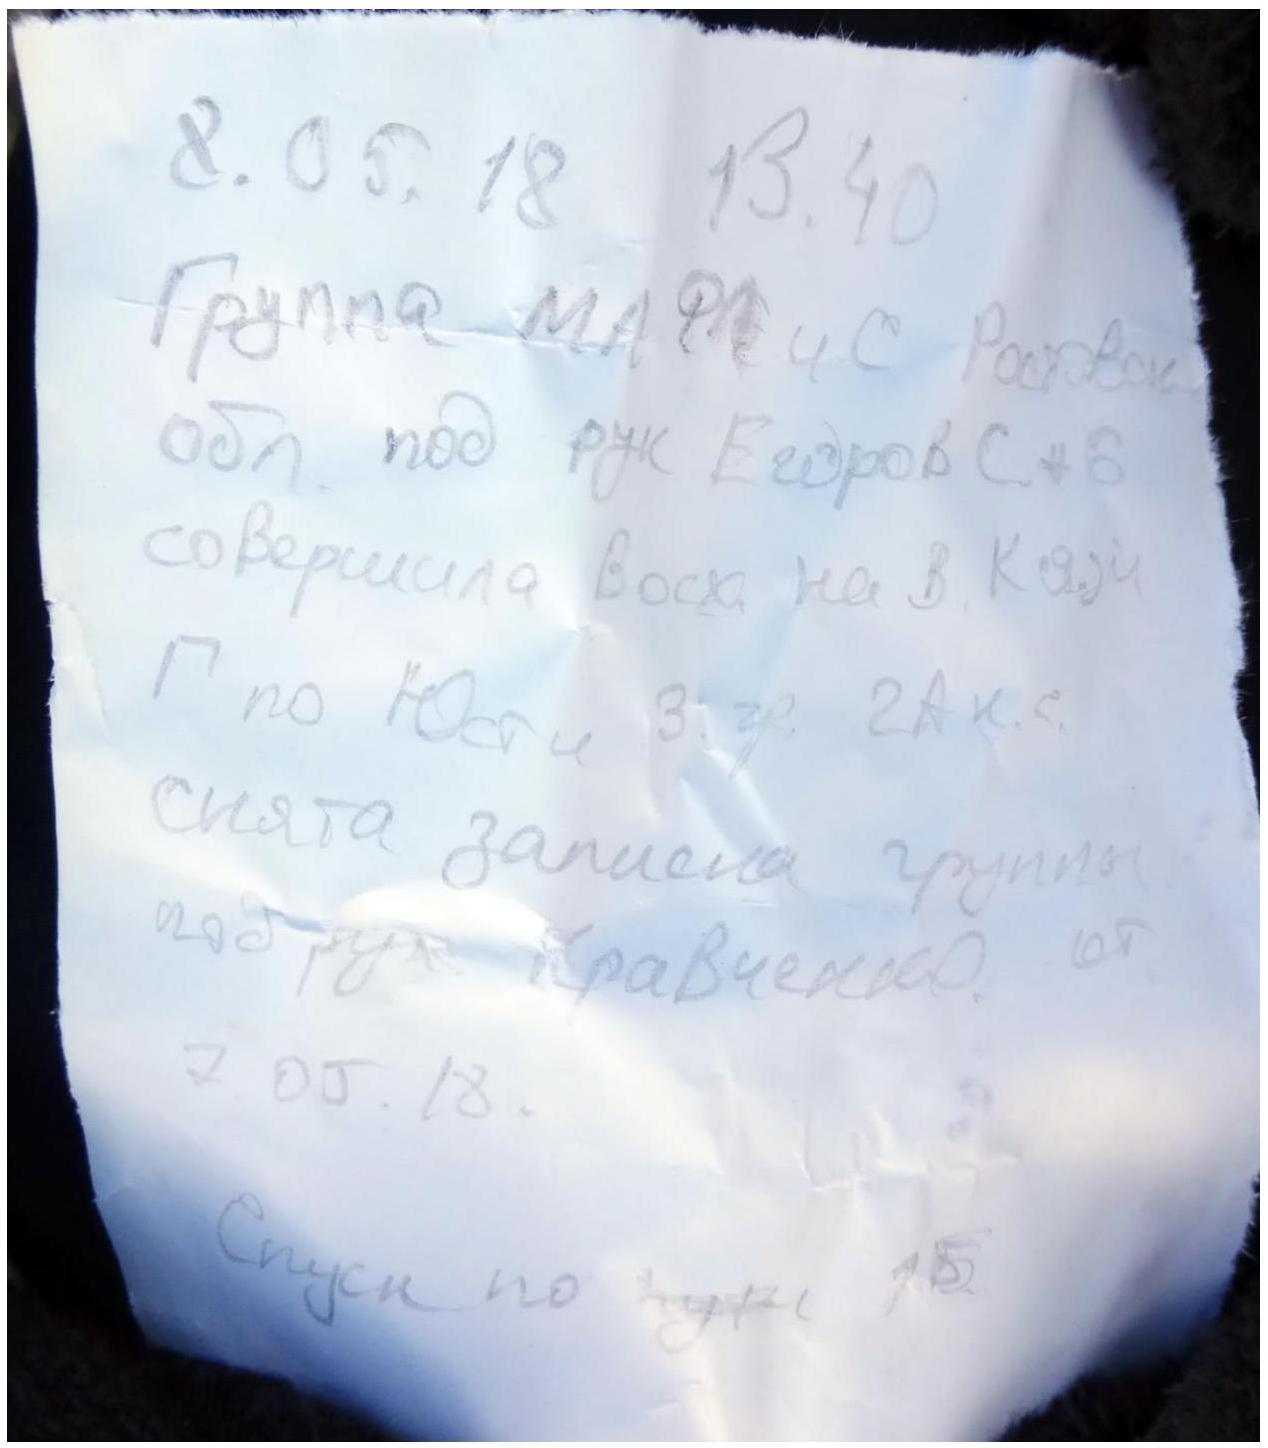 8.05.18 13.40
Группа и С Ростовск
обл. под рук Егоров С. + 6
совершила восх на В. Кязи
Г по Ю сти З. гр. 2А к.с.
снята записка группы
под рук Кравченко. от
7.05.18.
Спуск по 1Б